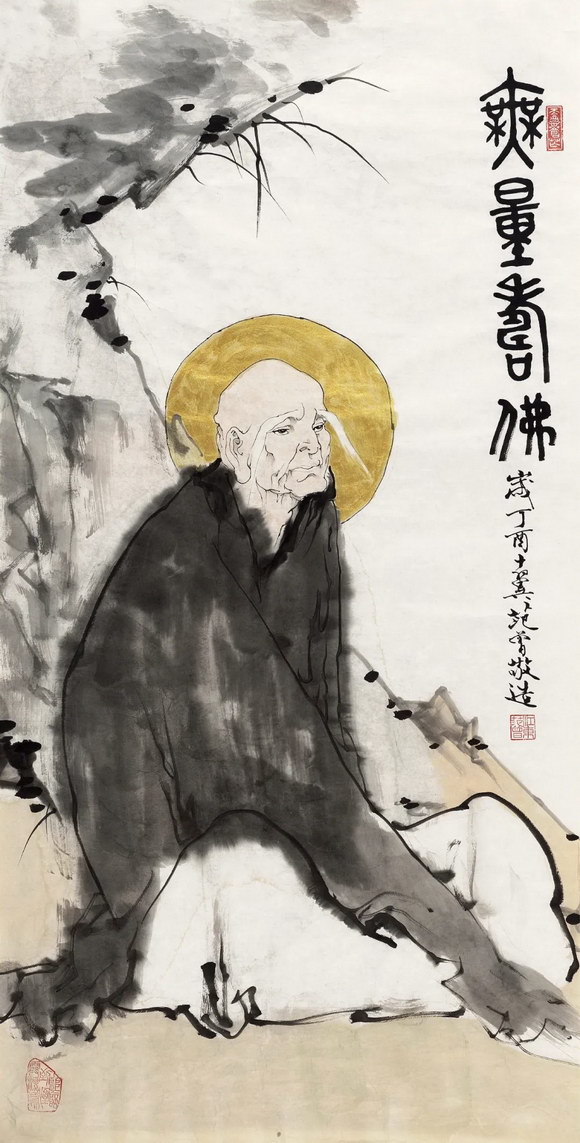 無量壽佛
歲丁酉十翼范曾敬造